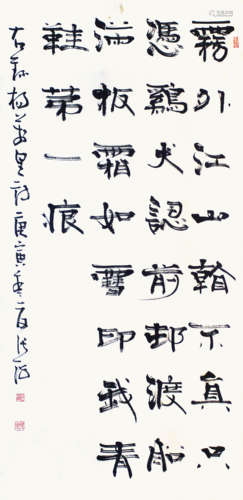 霧外江山看不真只
憑鷄犬認前邨渡船
滿板霜如雪印我青
鞋第一痕
右錄楊萬里詩庚寅年夏